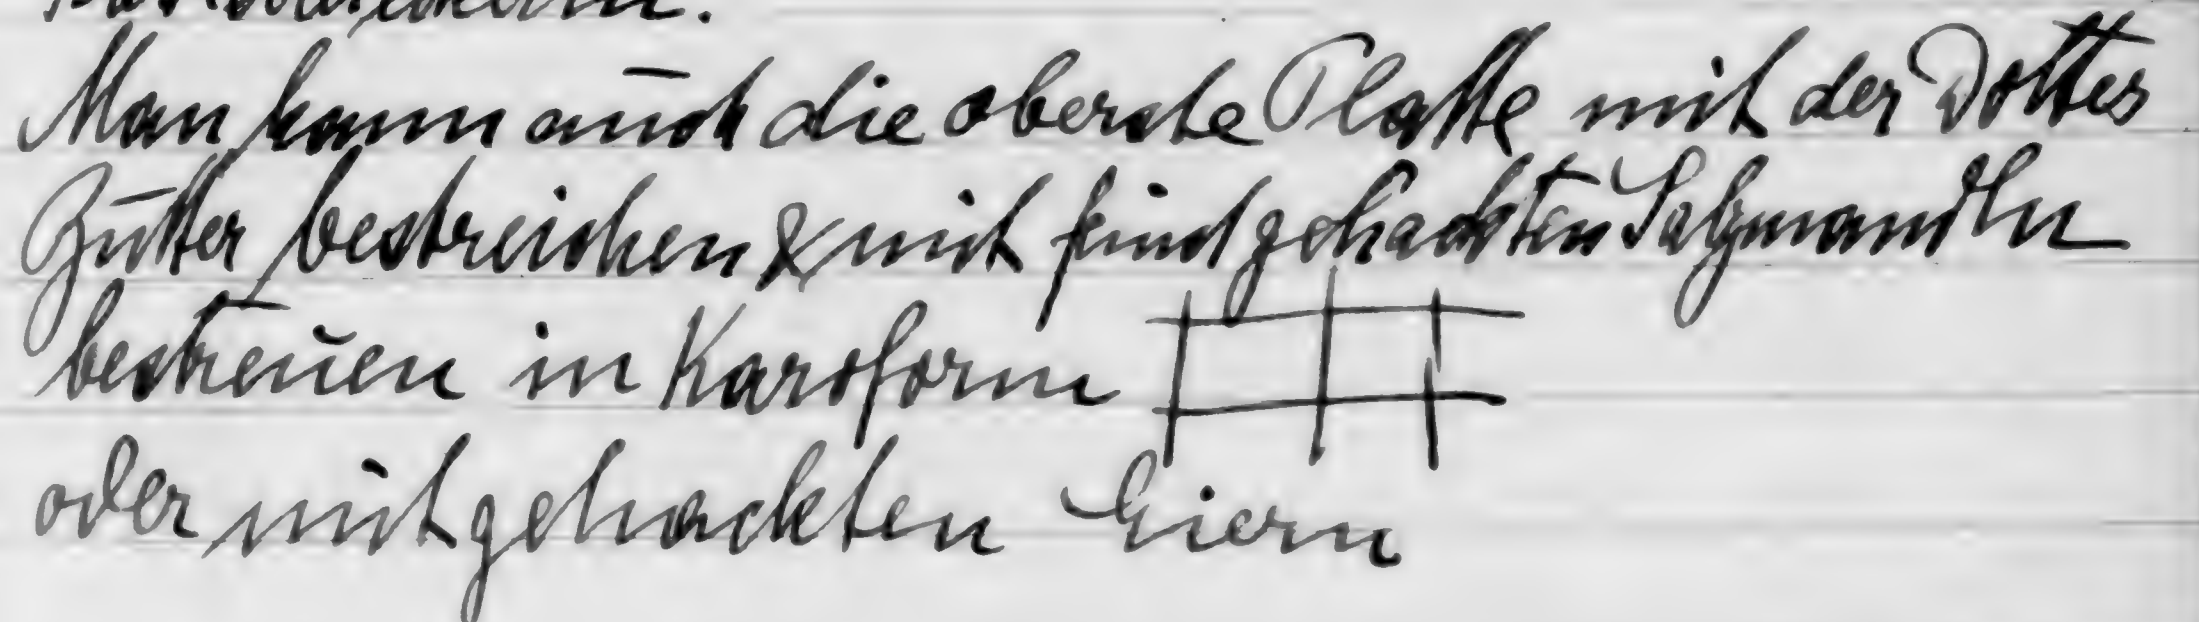 Man kann auch die oberste Platte mit der Dotter
Butter bestreichen & mit feingehackten Salzmandeln
bestreuen in Karoform
oder mit gehackten Eiern